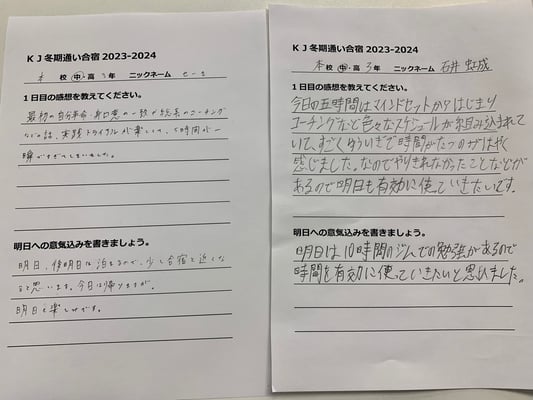 KJ冬期通い合宿 2023-2024
本 校 中・高 3年 ニックネーム せーき
1日目の感想を教えてください。
最初の自分革命・身口意の一致が総長のコーチング
などの話、実践トライアルが楽しくて、5時間が一
瞬ですぎてしまいました。
明日への意気込みを書きましょう。
明日、明後日は泊まるので、少し合宿と近くな
ると思います。今日は帰りますが、
明日も楽しみです。
KJ冬期通い合宿 2023-2024
本 校 中・高 3年 ニックネーム 石井 虹成
1日目の感想を教えてください。
今日の五時間はマインドセットからはじまり
コーチングなど色々なスケジュールが組み込まれて
いて、すごくゆういぎで時間がたつのがはやく
感じました。なのでやりきれなかったことなどが
あるので明日も有効に使っていきたいです。
明日への意気込みを書きましょう。
明日は10時間のジムでの勉強があるので
時間を有効に使っていきたいと思いました。